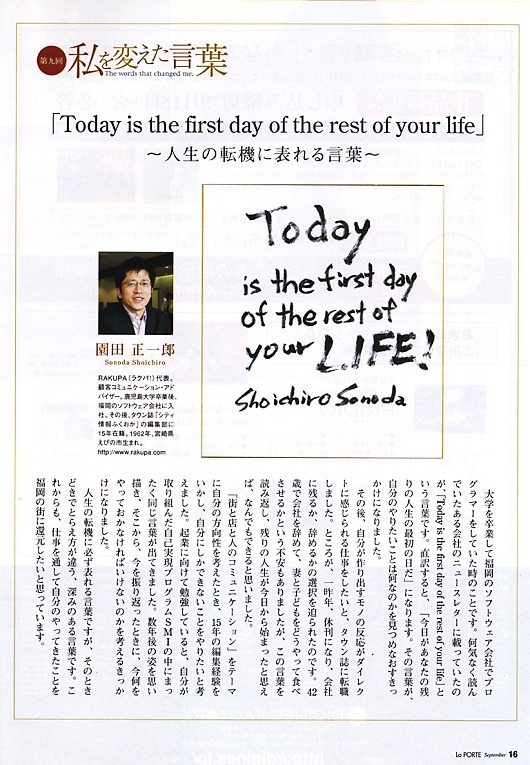 第九回
私を変えた言葉
The words that changed me.
「Today is the first day of the rest of your life」
〜人生の転機に表れる言葉〜
Today
is the first day
of the rest of
your LIFE!
Shoichiro Sonoda
園田 正一郎
Sonoda Shoichiro
RAKUPA（ラクパ!）代表。
顧客コミュニケーション・アド
バイザー。鹿児島大学卒業後、
福岡のソフトウェア会社に入
社。その後、タウン誌「シティ
情報ふくおか」の編集部に
15年在籍。1962年、宮崎県
えびの市生まれ。
http://www.rakupa.com
大学を卒業して福岡のソフトウェア会社でプロ
グラマーをしていた時のことです。何気なく読ん
でいたある会社のニュースレターに載っていたの
が、「Today is the first day of the rest of your life」と
いう言葉です。直訳すると、「今日があなたの残
りの人生の最初の日だ」になります。その言葉が、
自分のやりたいことは何なのかを見つめなおすきっ
かけになりました。
その後、自分が作り出すモノの反応がダイレク
トに感じられる仕事をしたいと、タウン誌に転職
しました。ところが、一昨年、休刊になり、会社
に残るか、辞めるかの選択を迫られたのです。42
歳で会社を辞めて、妻と子どもをどうやって食べ
させるかという不安もありましたが、この言葉を
読み返し、残りの人生が今日から始まったと思え
ば、なんでもできると思いました。
「街と店と人のコミュニケーション」をテーマ
に自分の方向性を考えたとき、15年の編集経験を
いかし、自分にしかできないことをやりたいと考
えました。起業に向けて勉強していると、自分が
取り組んだ自己実現プログラムSMIの中にまっ
たく同じ言葉が出てきました。数年後の姿を思い
描き、そこから、今を振り返ったときに、今何を
やっておかなければいけないのかを考えるきっか
けになりました。
人生の転機に必ず表れる言葉ですが、そのとき
どきでとらえ方が違う、深みのある言葉です。こ
れからも、仕事を通して自分のやってきたことを
福岡の街に還元したいと思っています。
La PORTE September 16